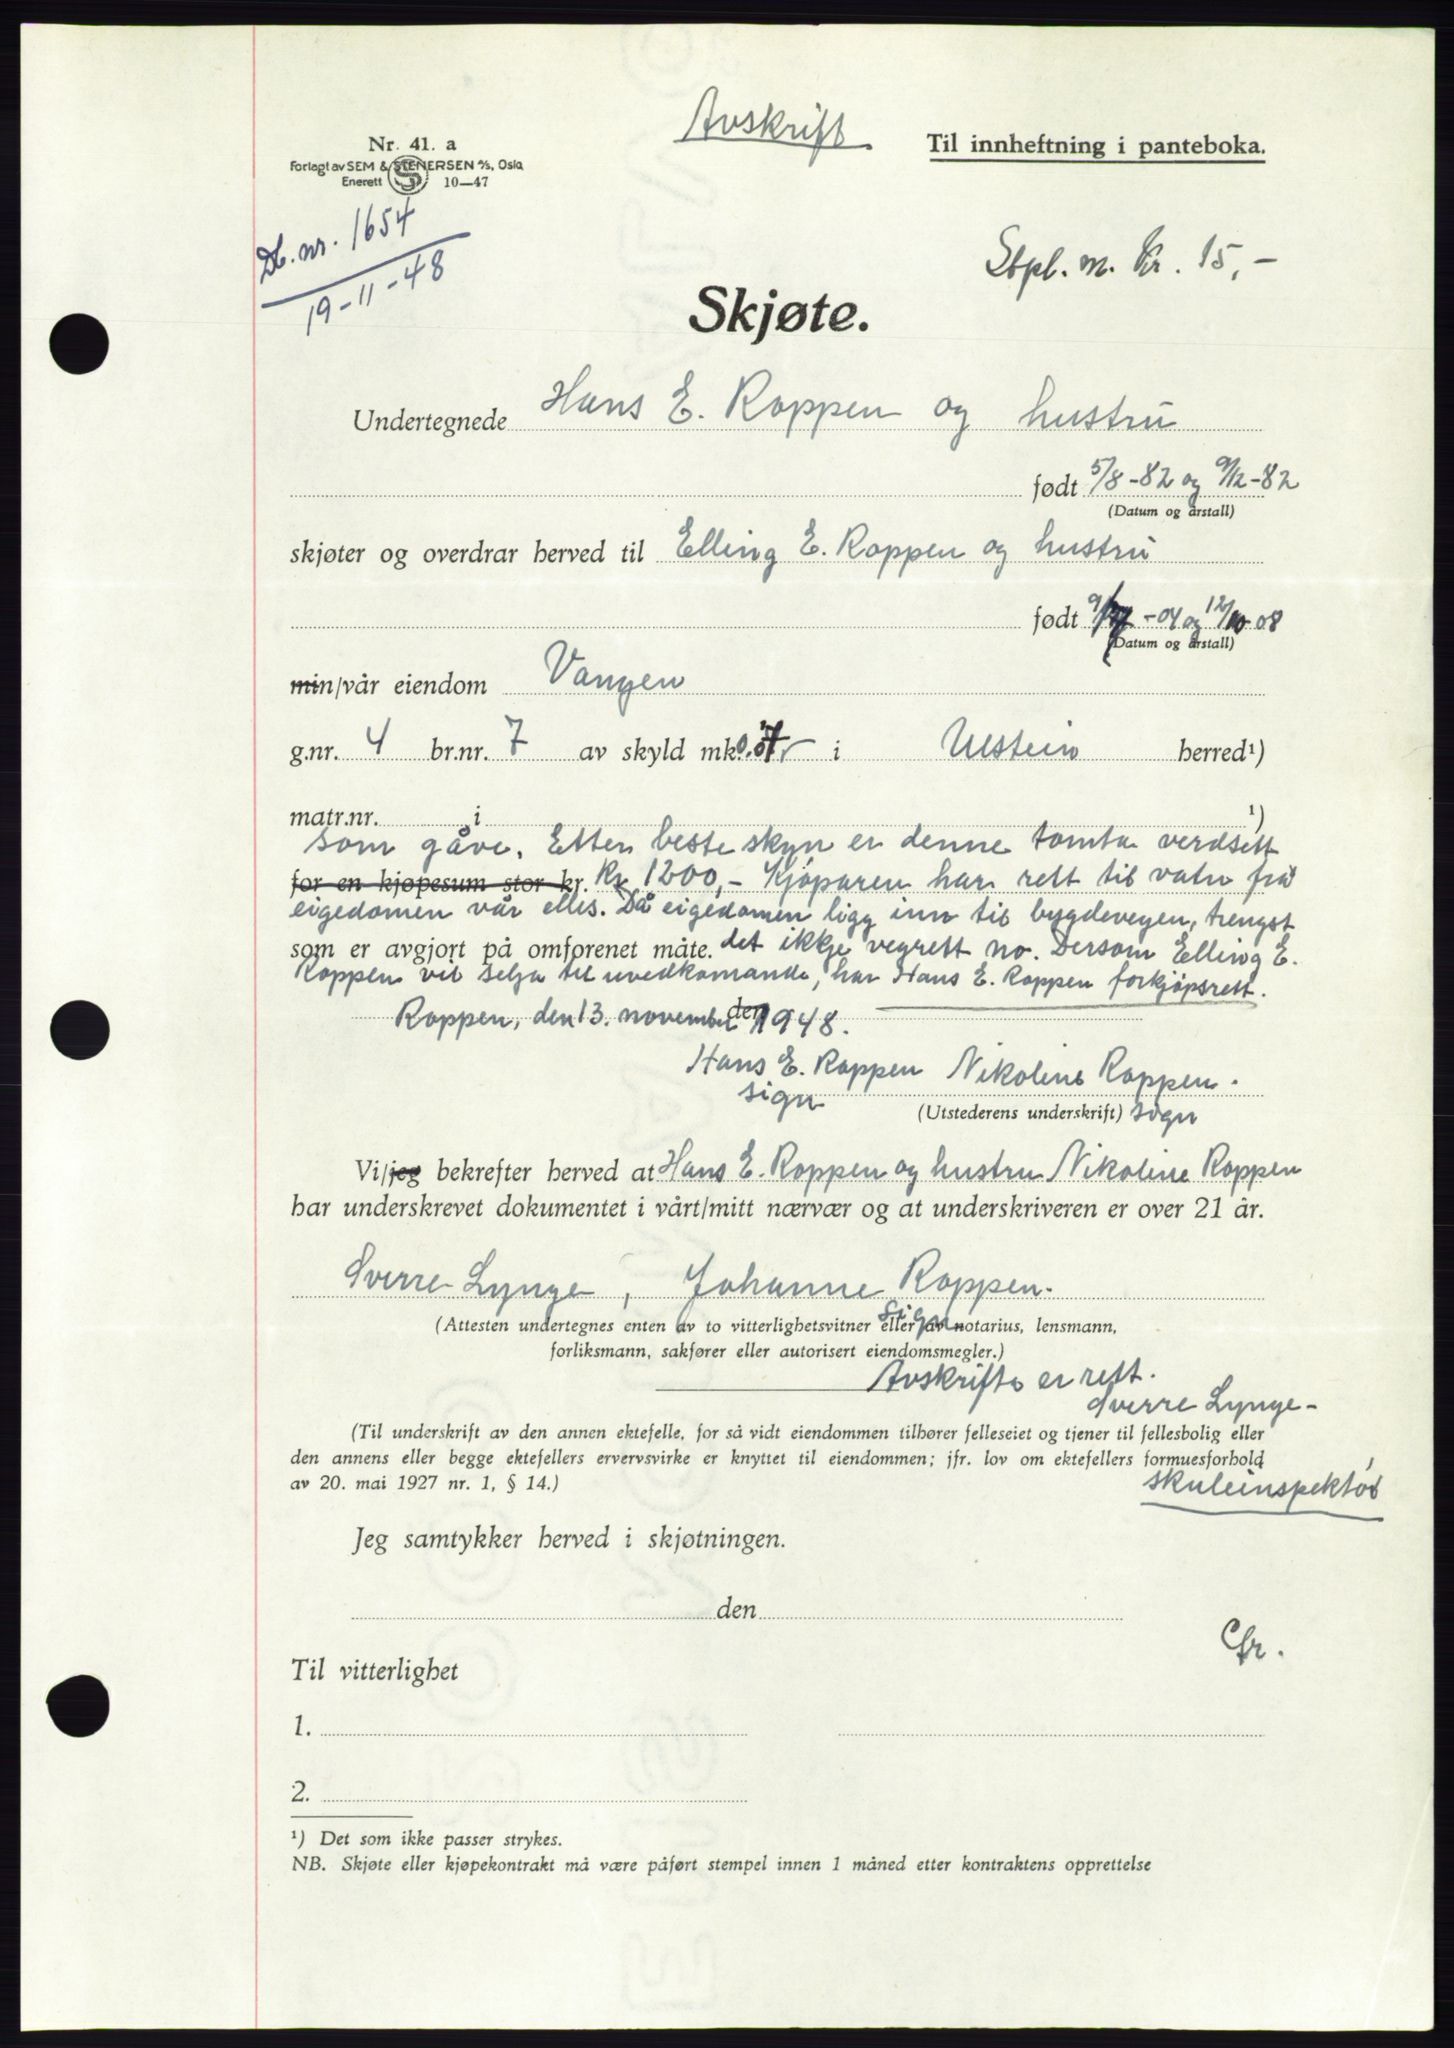 Avskrift
Nr. 41. a
Forlagt av SEM & STENERSEN A/S, Oslo
Enerett 10—47
Til innheftning i panteboka.
Db. nr. 1654
19-11-48
Stpl. m. kr. 15,-
Skjøte.
Undertegnede Hans E. Roppen og hustru
født 5/8-82 og 9/12-82
(Datum og årstall)
skjøter og overdrar herved til Elling E. Roppen og hustru
født -04 og 12/10-08
(Datum og årstall)
min/vår eiendom Vangen
g.nr. 4 br.nr. 7 av skyld mk. i Ulstein herred¹)
matr.nr. i ¹)
som gåve. Etter beste skyn er denne tomta verdsett
for en kjøpesum stor kr. Kr. 1200,- Kjøparen har rett til vatn frå
eigedomen vår elles. Då eigedomen ligg inn til bygdevegen, trengst
som er avgjort på omforenet måte. det ikkje vegrett no. Dersom Elling E.
Roppen vil selja til uvedkomande, har Hans E. Roppen forkjøpsrett.
Roppen, den 13. november den 1948.
Hans E. Roppen Nikoline Roppen.
sign
(Utstederens underskrift) sign
Vi/jeg bekrefter herved at Hans E. Roppen og hustru Nikoline Roppen
har underskrevet dokumentet i vårt/mitt nærvær og at underskriveren er over 21 år.
Sverre Lynge, Johanne Roppen.
sign
(Attesten undertegnes enten av to vitterlighetsvitner eller av notarius, lensmann,
forliksmann, sakfører eller autorisert eiendomsmegler.)
Avskrifta er rett.
Sverre Lynge-
(Til underskrift av den annen ektefelle, for så vidt eiendommen tilhører felleseiet og tjener til fellesbolig eller
den annens eller begge ektefellers ervervsvirke er knyttet til eiendommen; jfr. lov om ektefellers formuesforhold
av 20. mai 1927 nr. 1, § 14.)
skuleinspektør
Jeg samtykker herved i skjøtningen.
den
Til vitterlighet
1.
2.
¹) Det som ikke passer strykes.
NB. Skjøte eller kjøpekontrakt må være påført stempel innen 1 måned etter kontraktens opprettelse